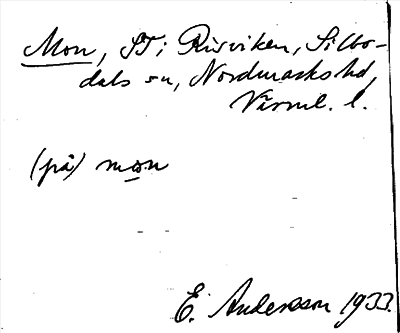 Mon, ST; Risviken, Silbo-
dals sn, Nordmarks hd,
Värml. l.
(på) mon
E. Andersson 1933.